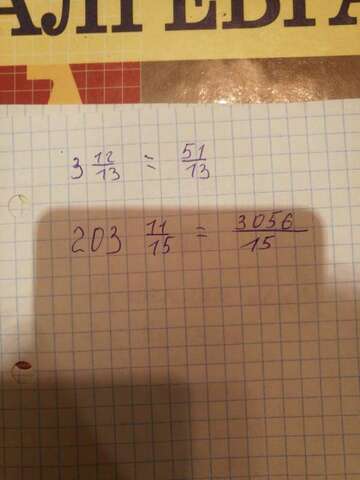 АЛГЕБРА
3 12/13 = 51/13
203 11/15 = 3056/15